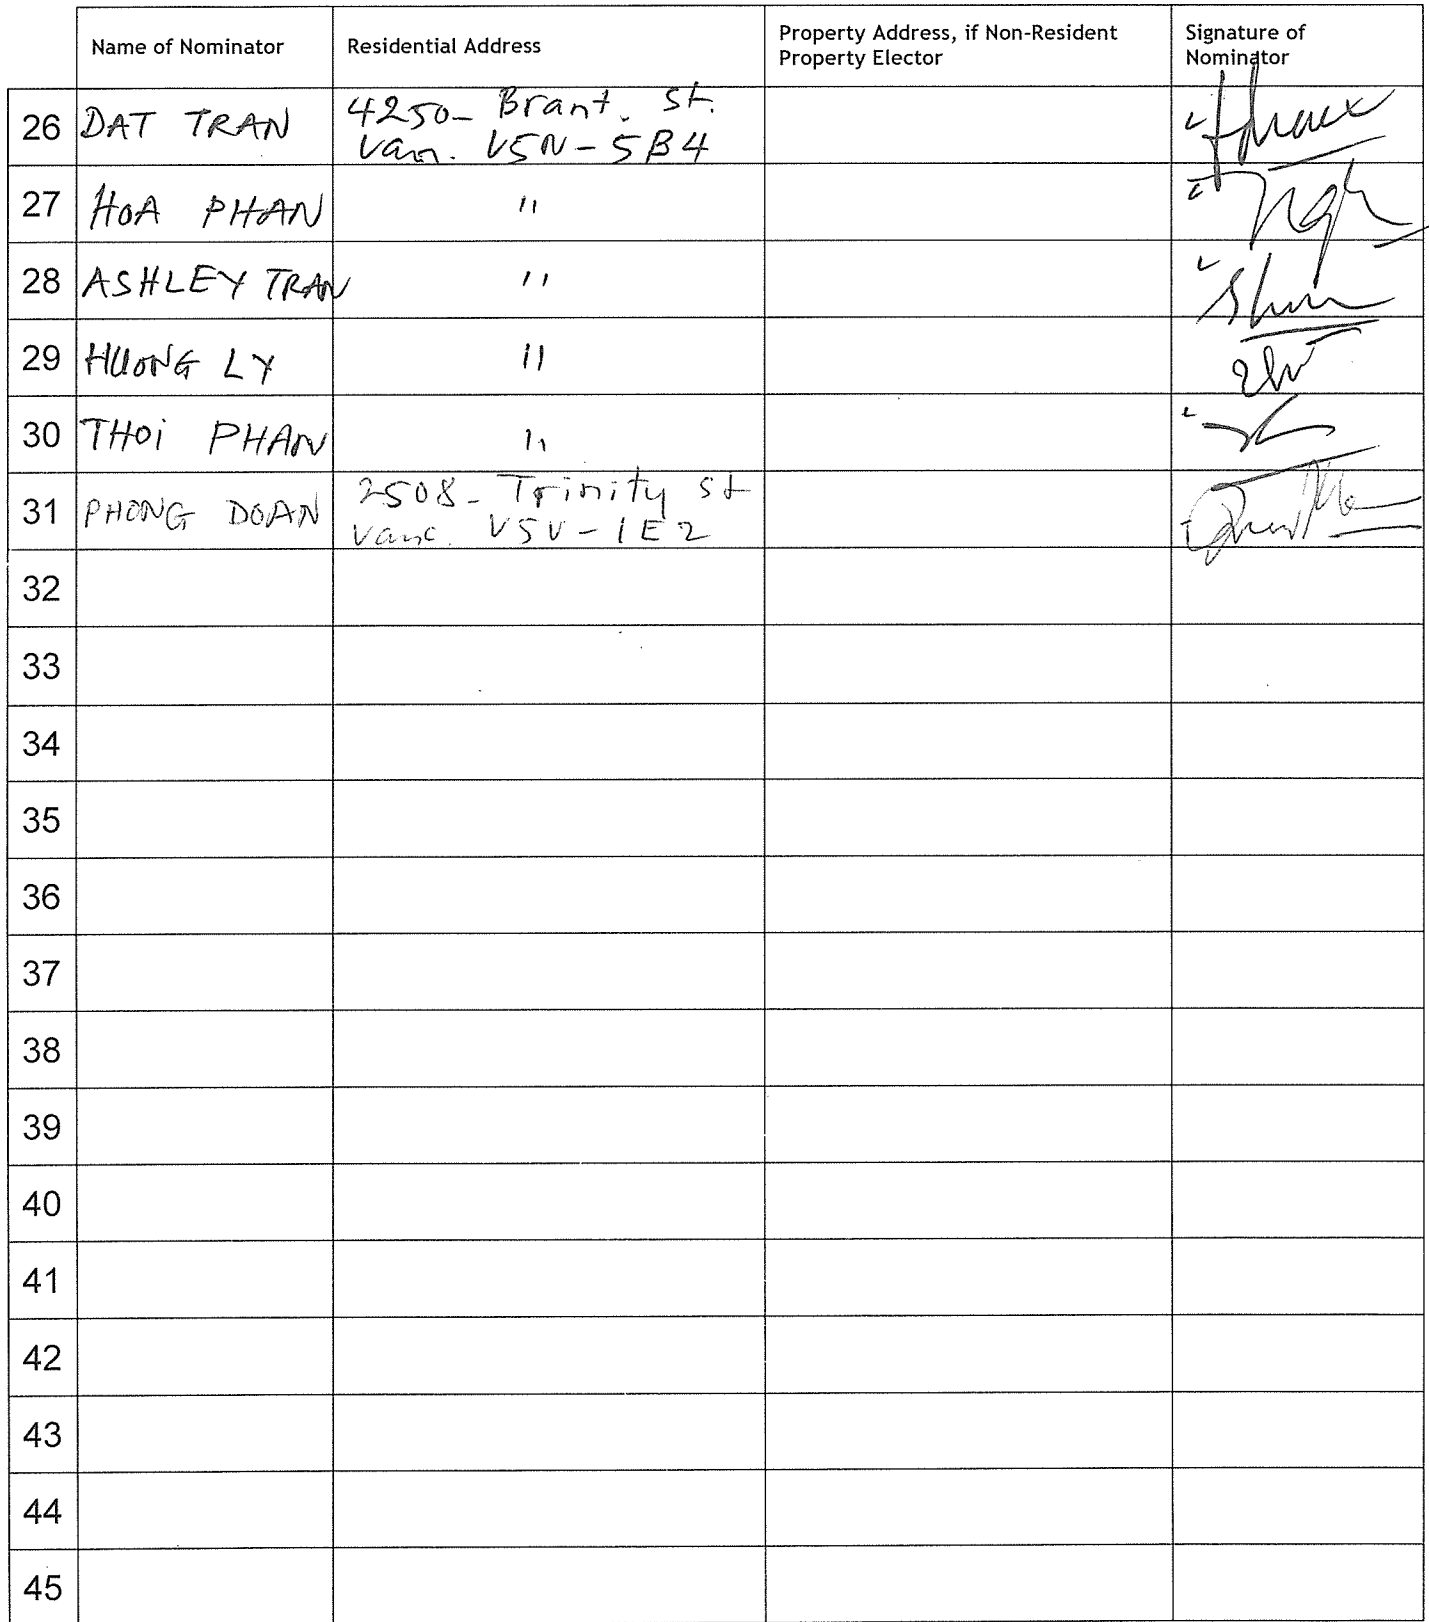 Name of Nominator
Residential Address
Property Address, if Non-Resident
Property Elector
Signature of
Nominator
26 DAT TRAN 4250- Brant. St.
Van. V5N-5B4
27 HOA PHAN "
28 ASHLEY TRAN "
29 HUONG LY "
30 THOI PHAN "
31 PHONG DOAN 2508- Trinity St
Vanc. V5V-1E2
32
33
34
35
36
37
38
39
40
41
42
43
44
45